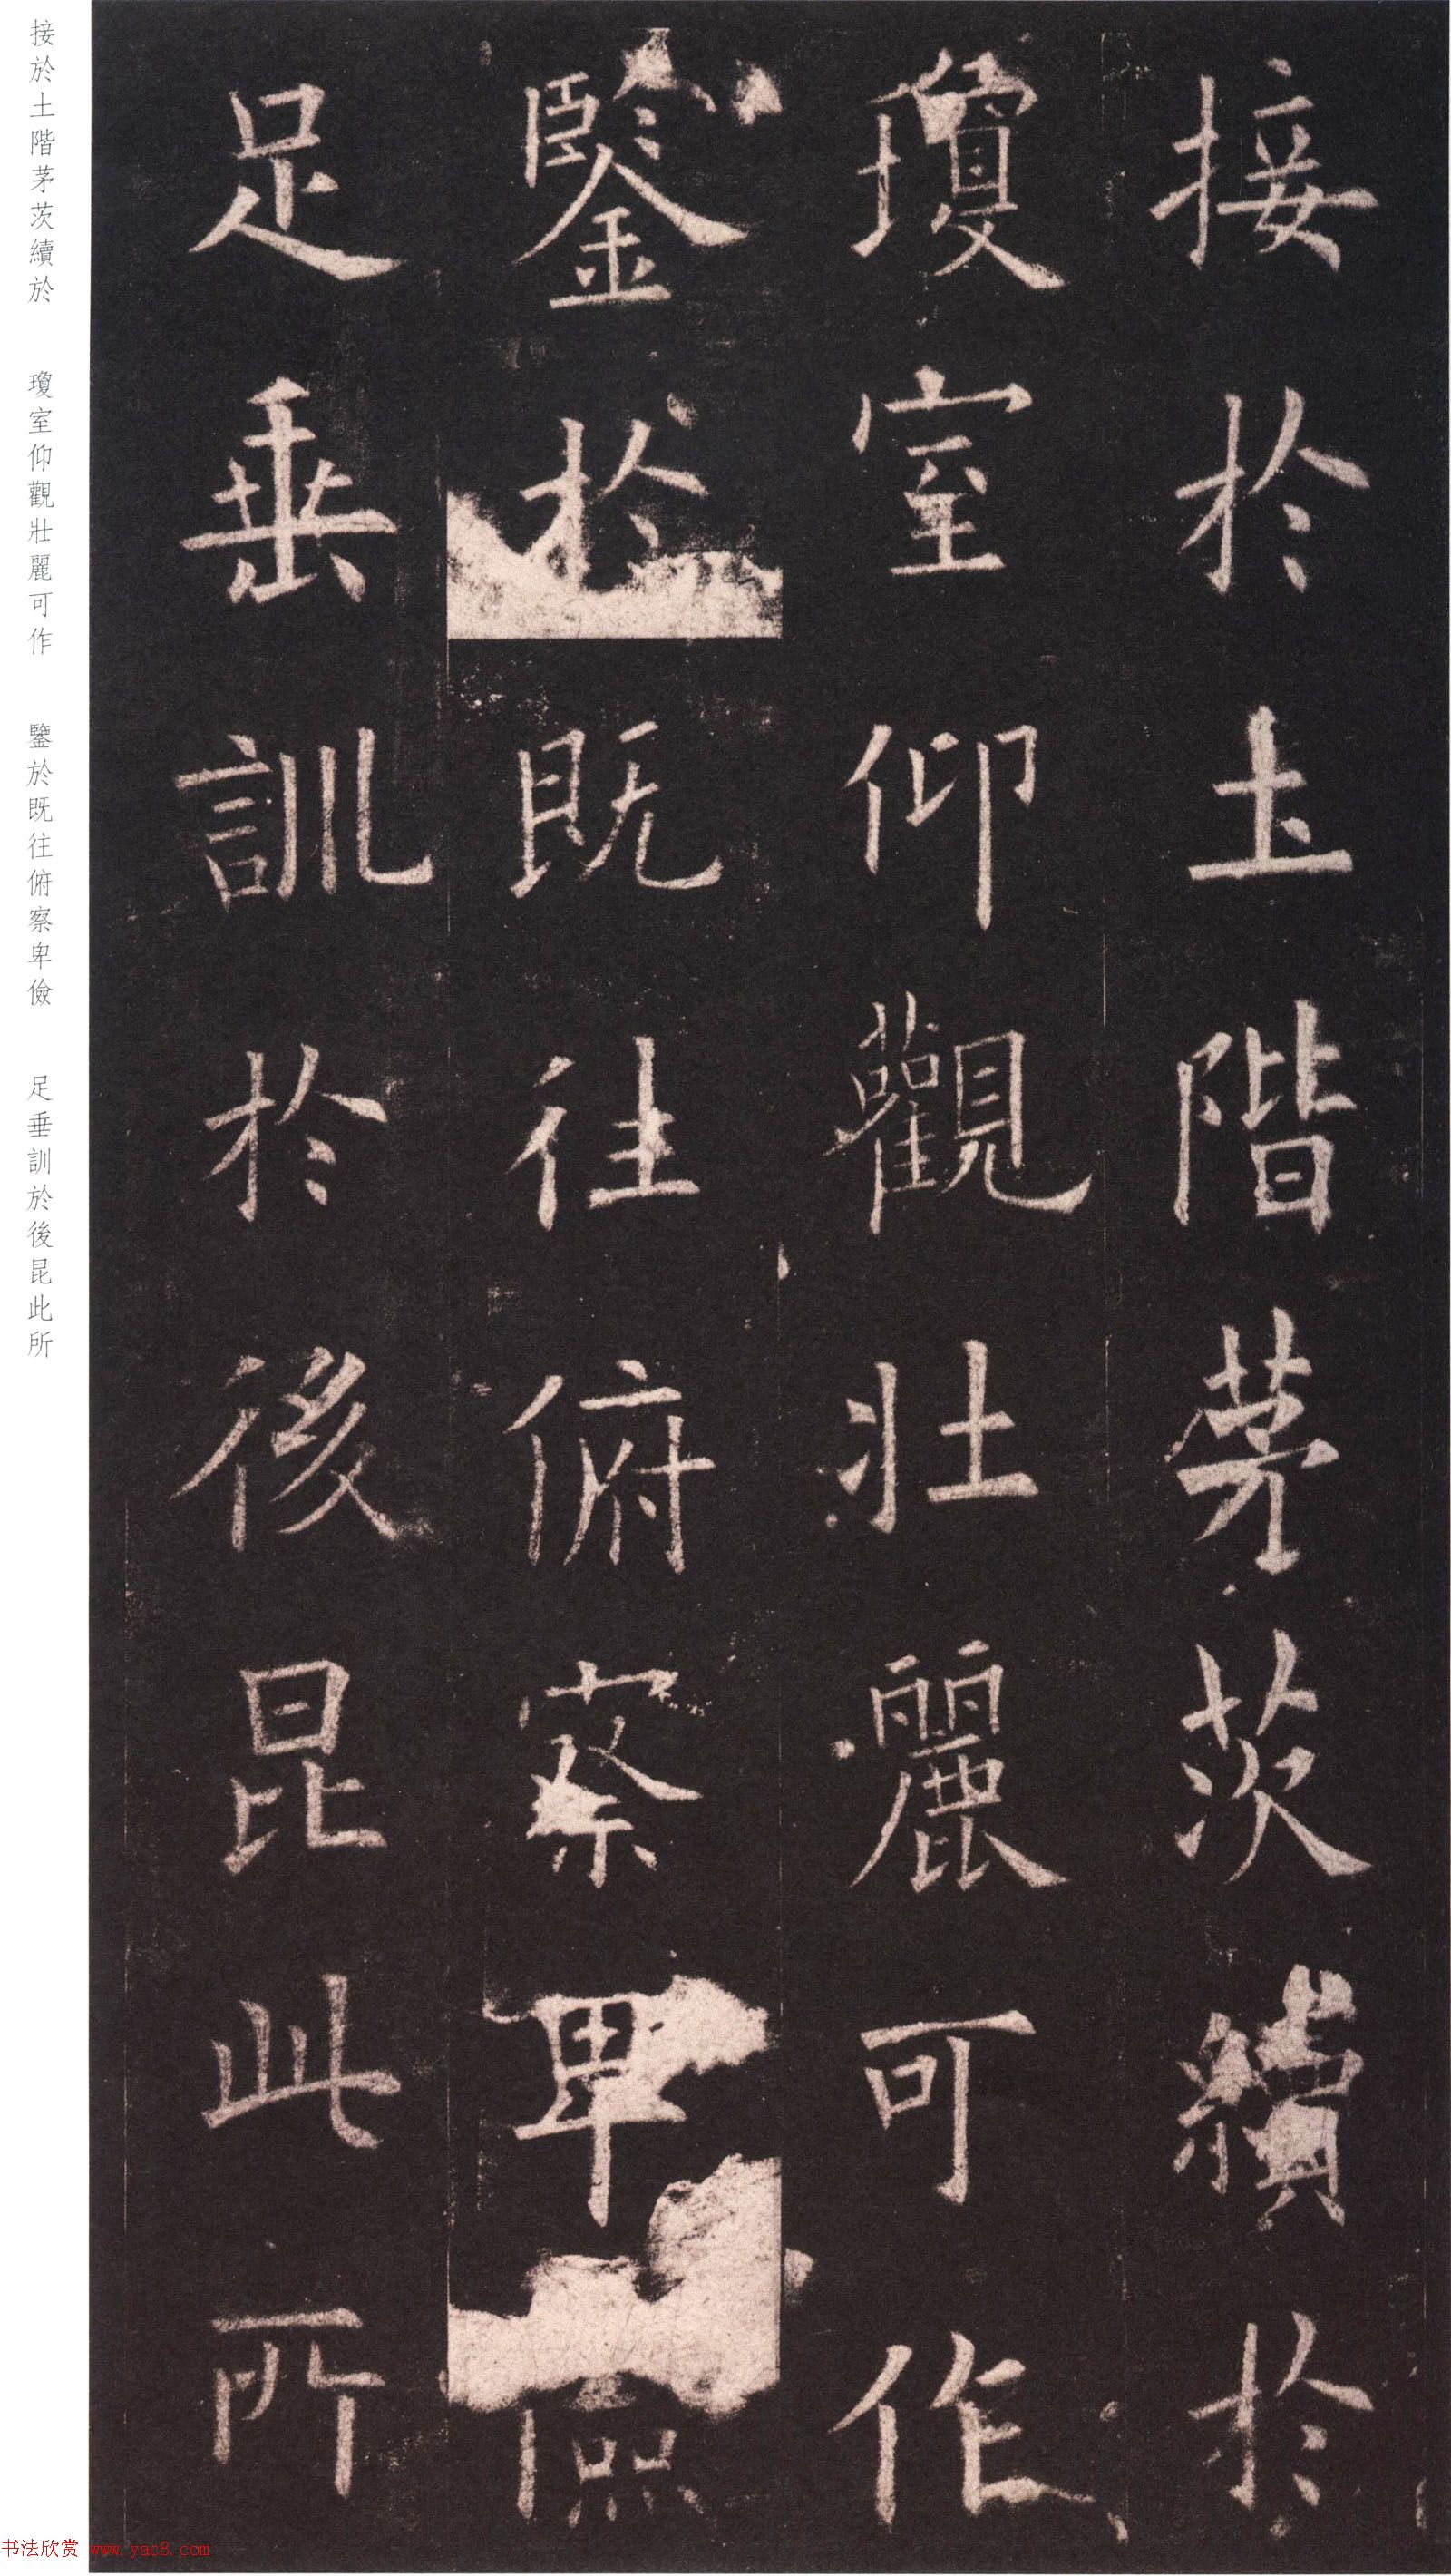 接於土階茅茨續於
瓊室仰觀壯麗可作
鑒於既往俯察卑儉
足垂訓於後昆此所
接於土階茅茨續於 瓊室仰觀壯麗可作 鑒於既往俯察卑儉 足垂訓於後昆此所
书法欣赏 www.yac8.com